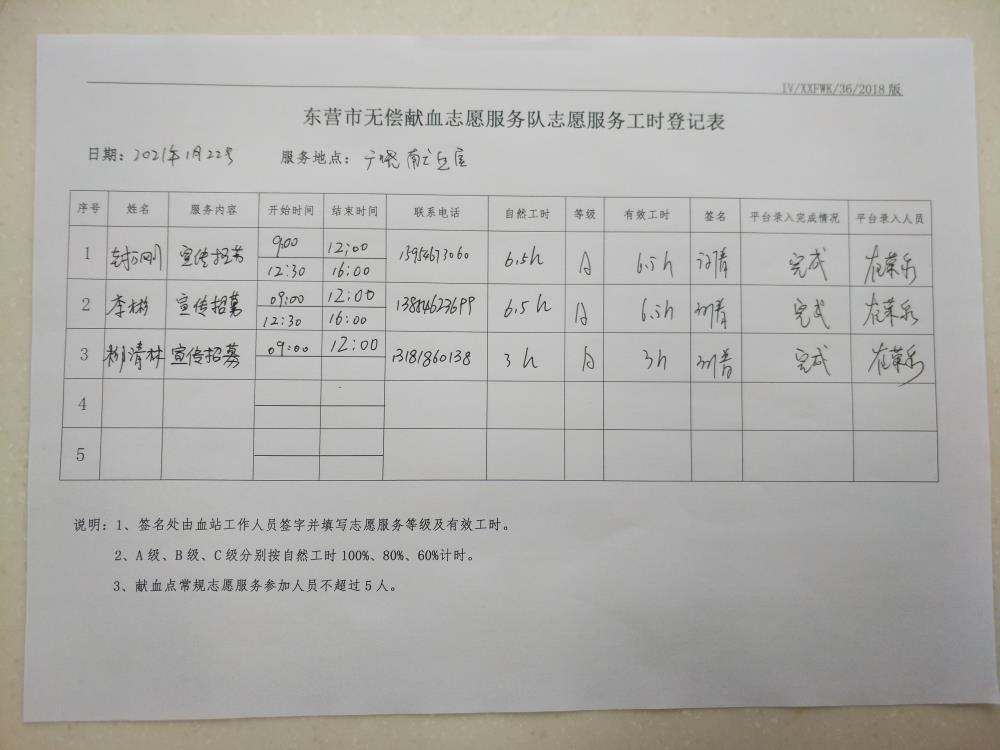 IV/XXFWK/36/2018版
东营市无偿献血志愿服务队志愿服务工时登记表
日期：2021年1月22号 服务地点：广饶
序号 姓名 服务内容 开始时间 结束时间 联系电话 自然工时 等级 有效工时 签名 平台录入完成情况 平台录入人员
1 刚 宣传招募 9:00 12:00 13954673060 6.5h A 6.5h 完成
12:30 16:00
2 李彬 宣传招募 09:00 12:00 6.5h A 6.5h 完成
12:30 16:00
3 柳清林 宣传招募 09:00 12:00 13181860138 3h A 3h 完成
4
5
说明：1、签名处由血站工作人员签字并填写志愿服务等级及有效工时。
2、A级、B级、C级分别按自然工时100%、80%、60%计时。
3、献血点常规志愿服务参加人员不超过5人。